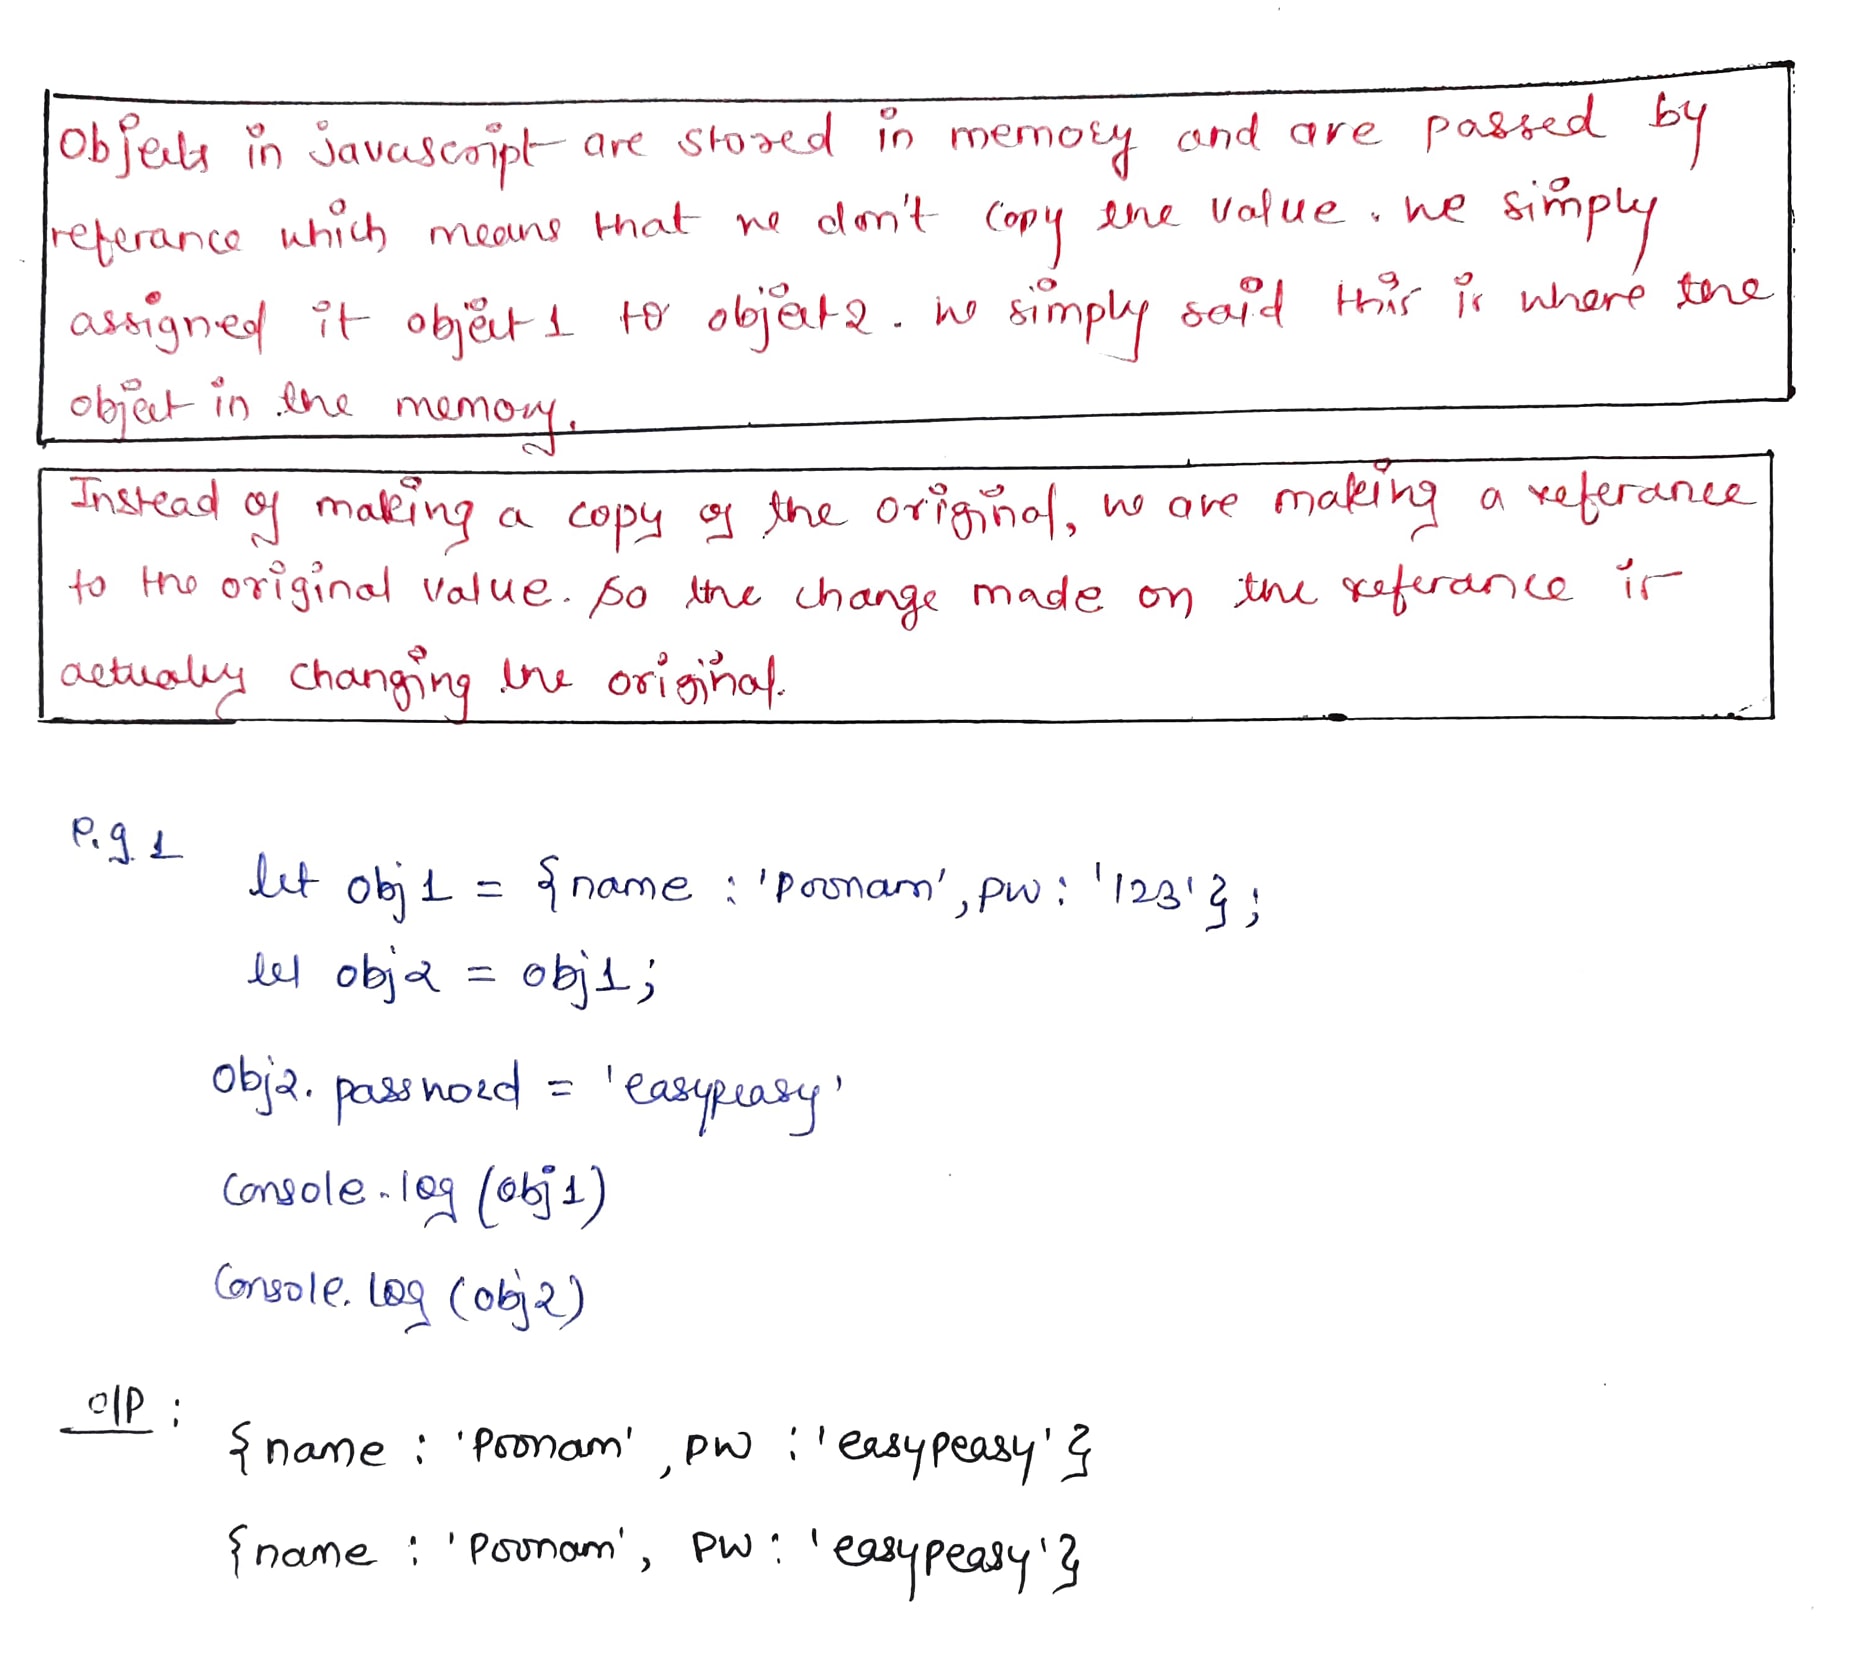 Objects in javascript are stored in memory and are passed by
referance which means that we don't copy the value. we simply
assigned it object 1 to object 2. we simply said this is where the
object in the memory.
Instead of making a copy of the original, we are making a referance
to the original value. so the change made on the referance is
actually changing the original.
e.g 1
let obj 1 = {name : 'Poonam', pw : '123'};
let obj2 = obj1;
obj2. password = 'easypeasy'
console.log (obj1)
console.log (obj2)
o/p :
{name : 'Poonam', pw : 'easypeasy'}
{name : 'Poonam', pw : 'easypeasy'}